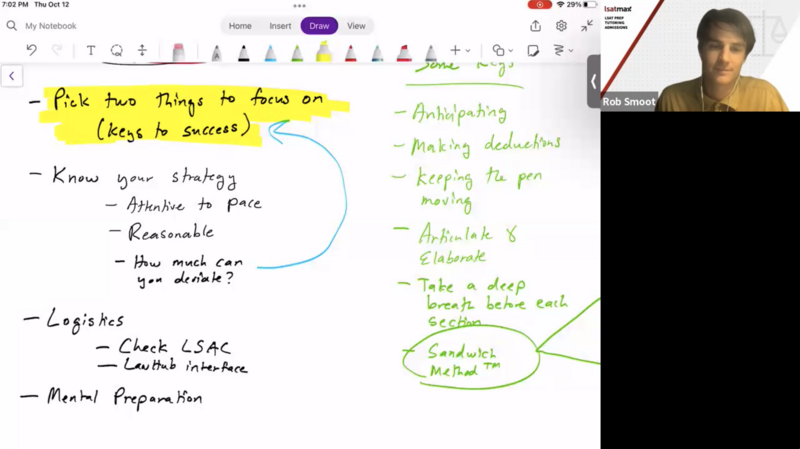 7:02 PM Thu Oct 12
29%
My Notebook
Home Insert Draw View
Pick two things to focus on
(keys to success)
- Know your strategy
- Attentive to pace
- Reasonable
- How much can
you deviate?
- Logistics
- Check LSAC
- LawHub interface
- Mental Preparation
Some Keys
- Anticipating
- Making deductions
- Keeping the pen
moving
- Articulate &
Elaborate
- Take a deep
breath before each
section
- Sandwich
Method TM
lsatmax
LSAT PREP
TUTORING
ADMISSIONS
Rob Smoot